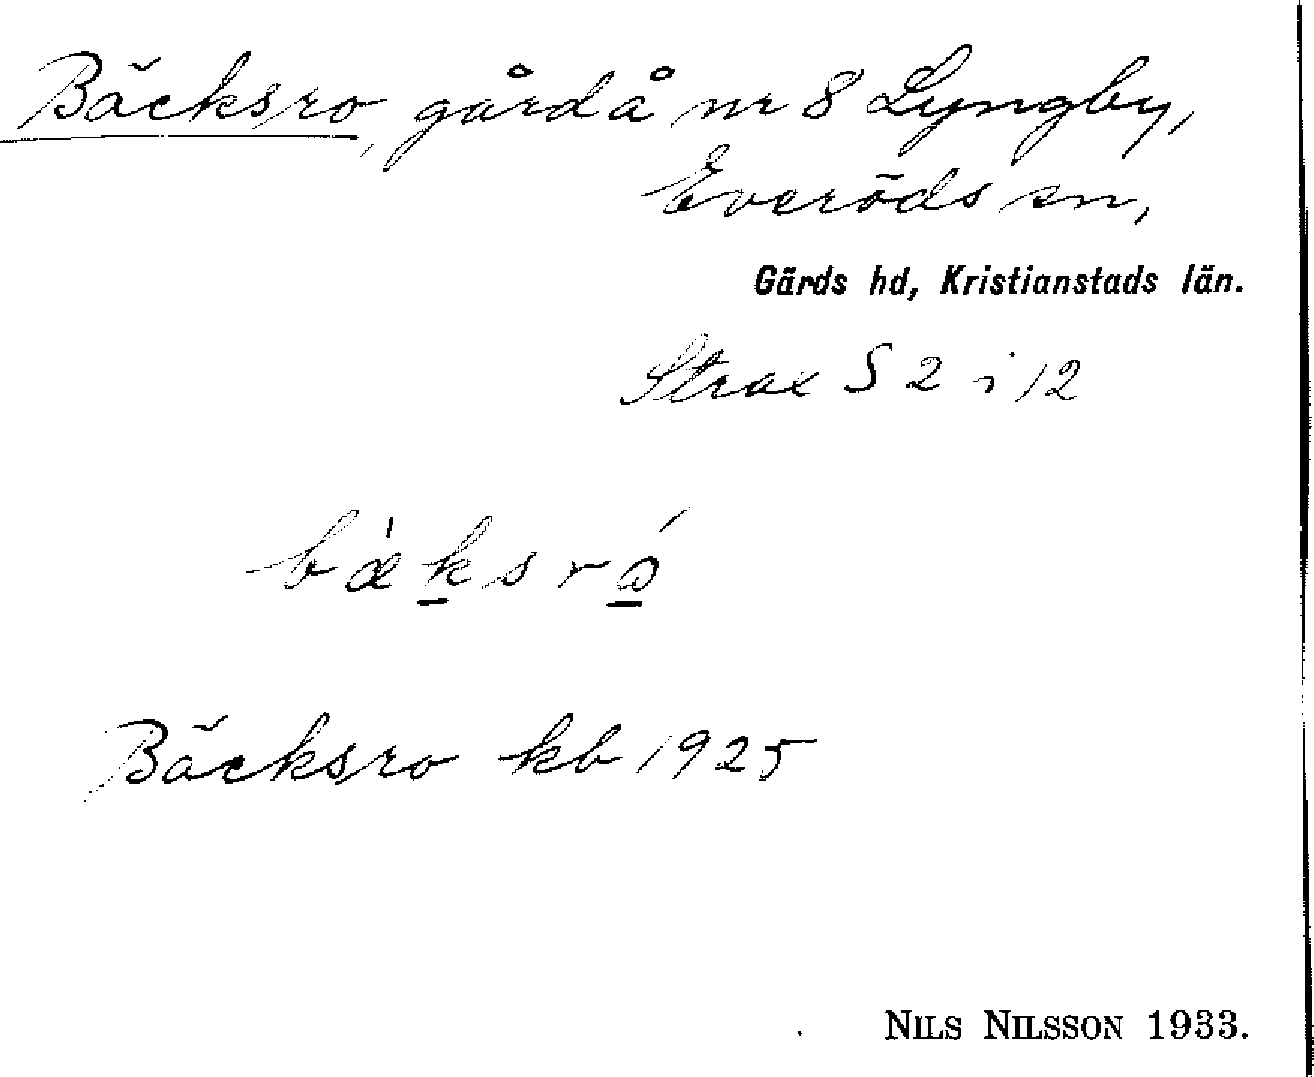 Bäcksro, gård å nr 8 Lyngby,
Everöds sn,
Gärds hd, Kristianstads län.
Strax S 2 i 12
bæ̀ksró
Bäcksro kb 1925
NILS NILSSON 1933.